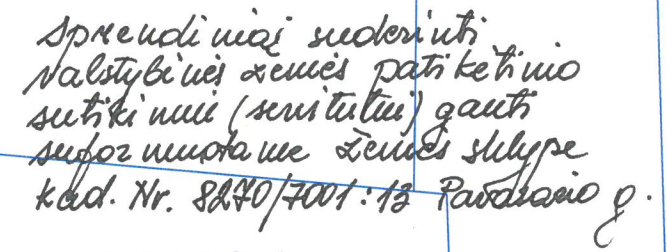 Sprendiniai suderinti
Valstybinės žemės patikėtinio
sutikimui (servitutui) gauti
suformuotame žemės sklype
kad. Nr. 8270/7001:13 Pavasario g.